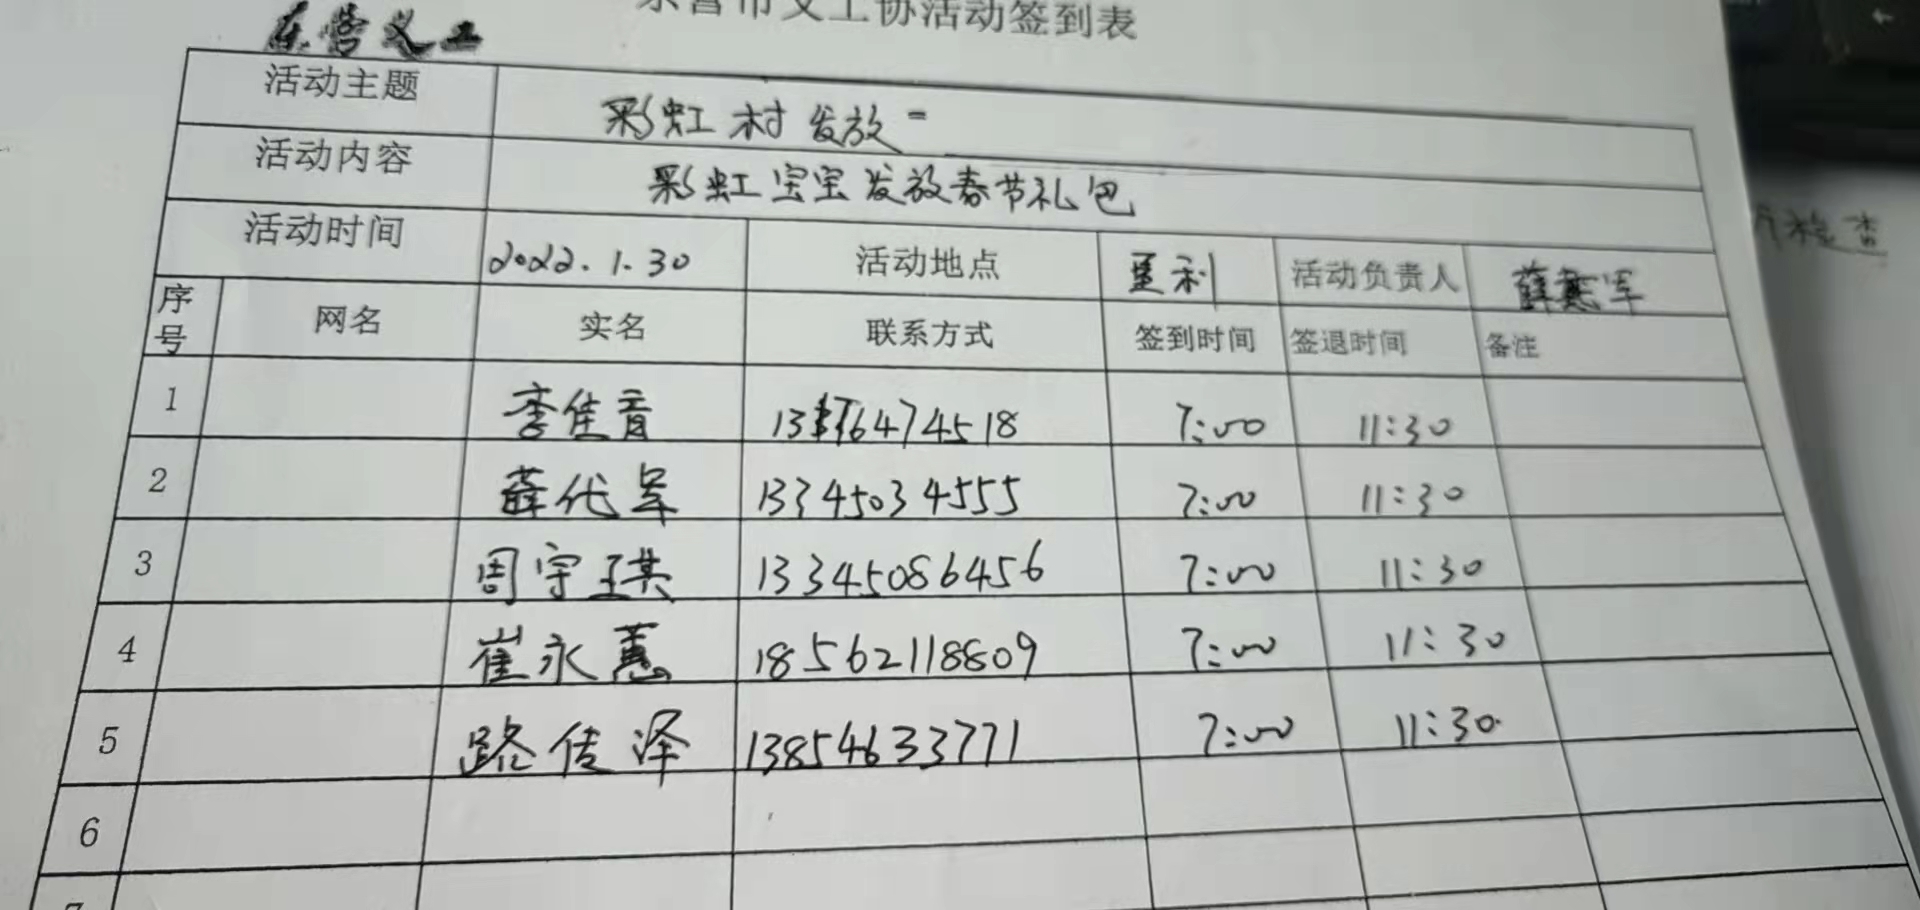 东营市义工协活动签到表
东营义工
活动主题 彩虹村发放
活动内容 彩虹宝宝发放春节礼包
活动时间 2022.1.30 活动地点 垦利 活动负责人 薛
序号 网名 实名 联系方式 签到时间 签退时间 备注
1 李佳音 7:00 11:30
2 薛代军 13345034555 7:00 11:30
3 周宇琪 13345086456 7:00 11:30
4 崔永蕙 18562118809 7:00 11:30
5 路传泽 13854633771 7:00 11:30
6
7
检查